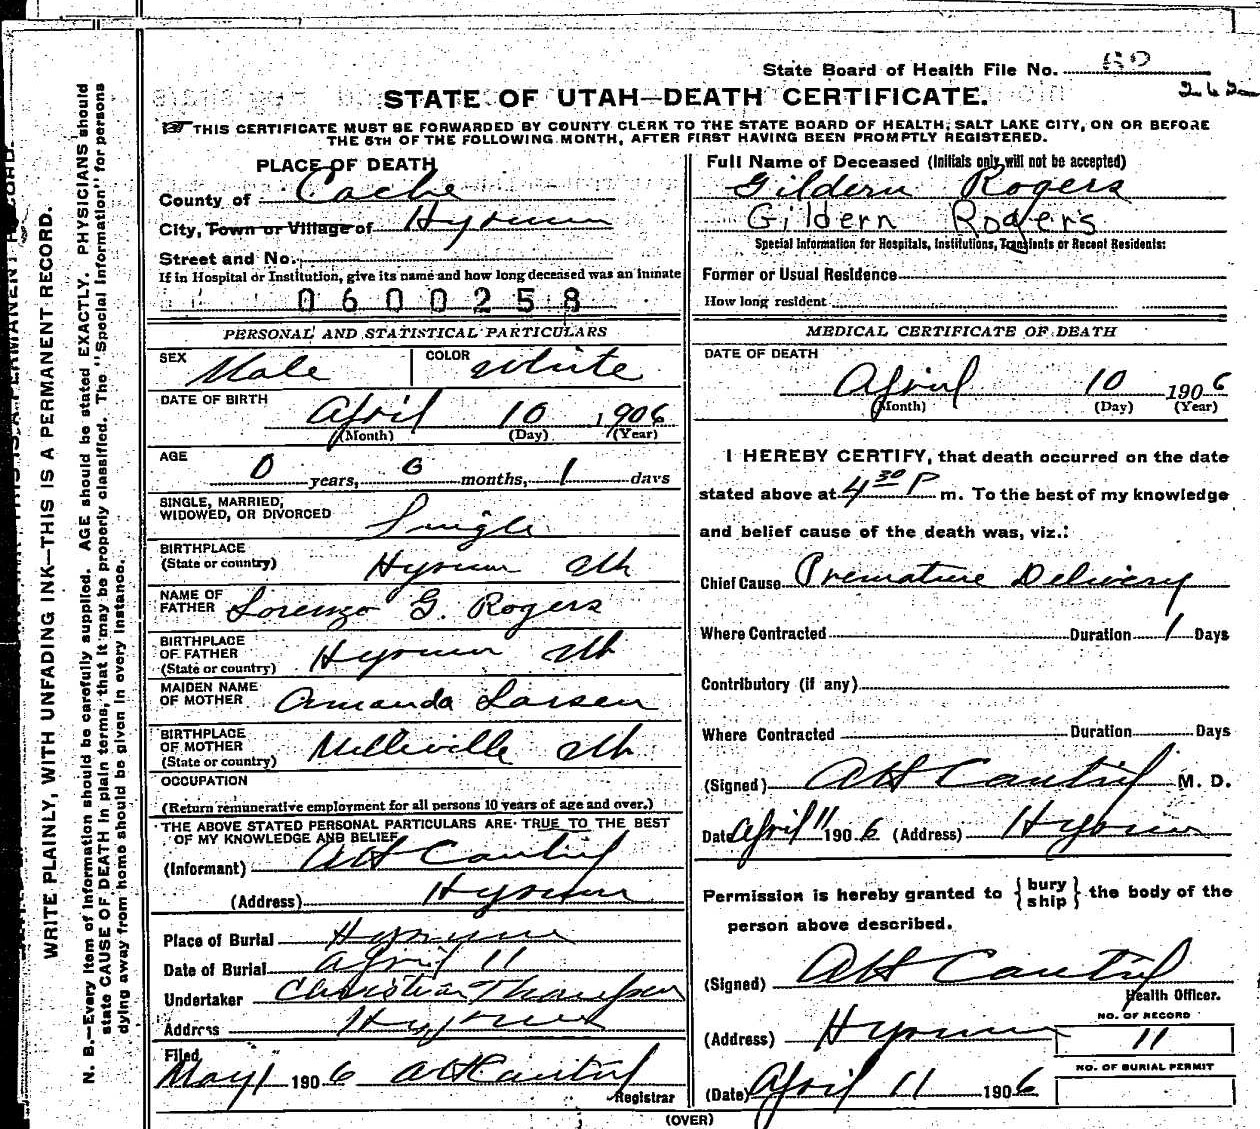 State Board of Health File No. 80
262
STATE OF UTAH—DEATH CERTIFICATE.
☞ THIS CERTIFICATE MUST BE FORWARDED BY COUNTY CLERK TO THE STATE BOARD OF HEALTH, SALT LAKE CITY, ON OR BEFORE
THE 5TH OF THE FOLLOWING MONTH, AFTER FIRST HAVING BEEN PROMPTLY REGISTERED.
PLACE OF DEATH
County of Cache
City, Town or Village of Hyrum
Street and No.
If in Hospital or Institution, give its name and how long deceased was an inmate
0600258
PERSONAL AND STATISTICAL PARTICULARS
SEX Male COLOR White
DATE OF BIRTH April 10 1906
(Month) (Day) (Year)
AGE 0 years, 0 months, 1 days
SINGLE, MARRIED,
WIDOWED, OR DIVORCED Single
BIRTHPLACE
(State or country) Hyrum Uth
NAME OF
FATHER Lorenzo G. Rogers
BIRTHPLACE
OF FATHER
(State or country) Hyrum Uth
MAIDEN NAME
OF MOTHER Amanda Larsen
BIRTHPLACE
OF MOTHER
(State or country) Millville Uth
OCCUPATION
(Return remunerative employment for all persons 10 years of age and over.)
THE ABOVE STATED PERSONAL PARTICULARS ARE TRUE TO THE BEST
OF MY KNOWLEDGE AND BELIEF
(Informant) AH Cantril
(Address) Hyrum
Place of Burial Hyrum
Date of Burial April 11
Undertaker Christian
Address Hyrum
Filed
May 1 1906 AH Cantril
Registrar
Full Name of Deceased (Initials only will not be accepted)
Gildern Rogers
Gildern Rogers
Special Information for Hospitals, Institutions, Transients or Recent Residents:
Former or Usual Residence
How long resident
MEDICAL CERTIFICATE OF DEATH
DATE OF DEATH
April 10 1906
(Month) (Day) (Year)
I HEREBY CERTIFY, that death occurred on the date
stated above at 4 30 P m. To the best of my knowledge
and belief cause of the death was, viz.:
Chief Cause Premature Delivery
Where Contracted Duration 1 Days
Contributory (if any)
Where Contracted Duration Days
(Signed) AH Cantril M. D.
Date April 11 1906 (Address) Hyrum
Permission is hereby granted to {bury ship} the body of the
person above described.
(Signed) AH Cantril
Health Officer.
(Address) Hyrum
NO. OF RECORD
11
NO. OF BURIAL PERMIT
(Date) April 11 1906
(OVER)
WRITE PLAINLY, WITH UNFADING INK—THIS IS A PERMANENT RECORD.
N. B.—Every item of information should be carefully supplied. AGE should be stated EXACTLY. PHYSICIANS should
state CAUSE OF DEATH in plain terms, that it may be properly classified. The "Special Information" for persons
dying away from home should be given in every instance.